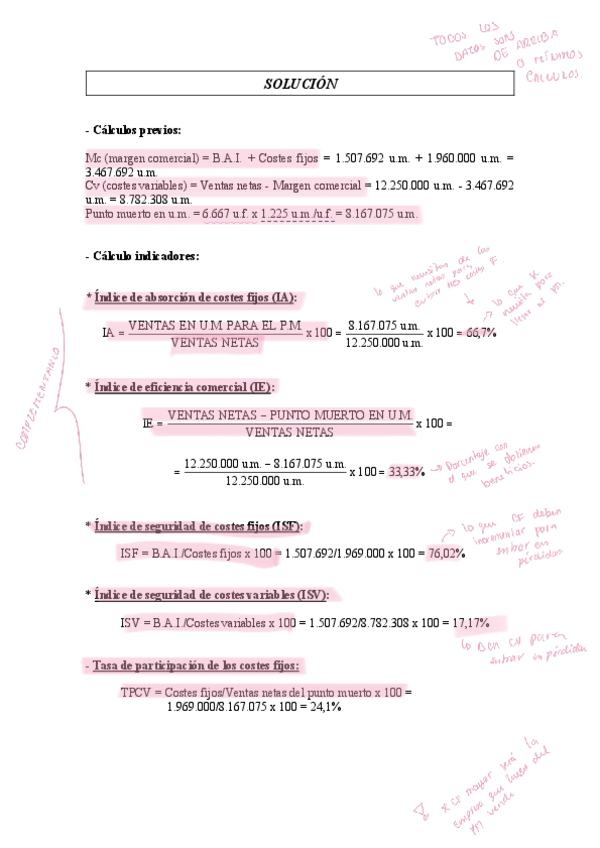 TODOS LOS
DATOS SONS
DE ARRIBA
O
CALCULOS.
SOLUCIÓN
- Cálculos previos:
Mc (margen comercial) = B.A.I. + Costes fijos = 1.507.692 u.m. + 1.960.000 u.m. =
3.467.692 u.m.
Cv (costes variables) = Ventas netas - Margen comercial = 12.250.000 u.m. - 3.467.692
u.m. = 8.782.308 u.m.
Punto muerto en u.m. = 6.667 u.f. x 1.225 u.m./u.f. = 8.167.075 u.m.
- Cálculo indicadores:
lo que necesitas de las
ventas netas para
cubrir los costes F.
lo que
necesita para
llegar al PM.
* Índice de absorción de costes fijos (IA):
IA = VENTAS EN U.M. PARA EL P.M. x 100 = 8.167.075 u.m. x 100 = 66,7%
VENTAS NETAS 12.250.000 u.m.
COMPLEMENTANDO
* Índice de eficiencia comercial (IE):
IE = VENTAS NETAS – PUNTO MUERTO EN U.M. x 100 =
VENTAS NETAS
= 12.250.000 u.m. – 8.167.075 u.m. x 100 = 33,33%
12.250.000 u.m.
Porcentaje con
el que se obtienen
beneficios.
* Índice de seguridad de costes fijos (ISF):
lo que CF deben
incrementar para
entrar en
pérdidas
ISF = B.A.I./Costes fijos x 100 = 1.507.692/1.969.000 x 100 = 76,02%
* Índice de seguridad de costes variables (ISV):
ISV = B.A.I./Costes variables x 100 = 1.507.692/8.782.308 x 100 = 17,17%
CV para
entrar en pérdidas
- Tasa de participación de los costes fijos:
TPCV = Costes fijos/Ventas netas del punto muerto x 100 =
1.969.000/8.167.075 x 100 = 24,1%
mayor será la
empresa que luego del
PM vende